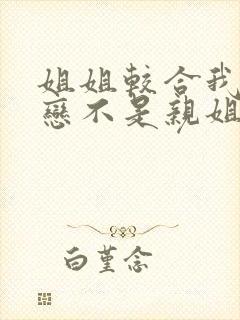 姐姐較合我
戀不是親姐
白堇念